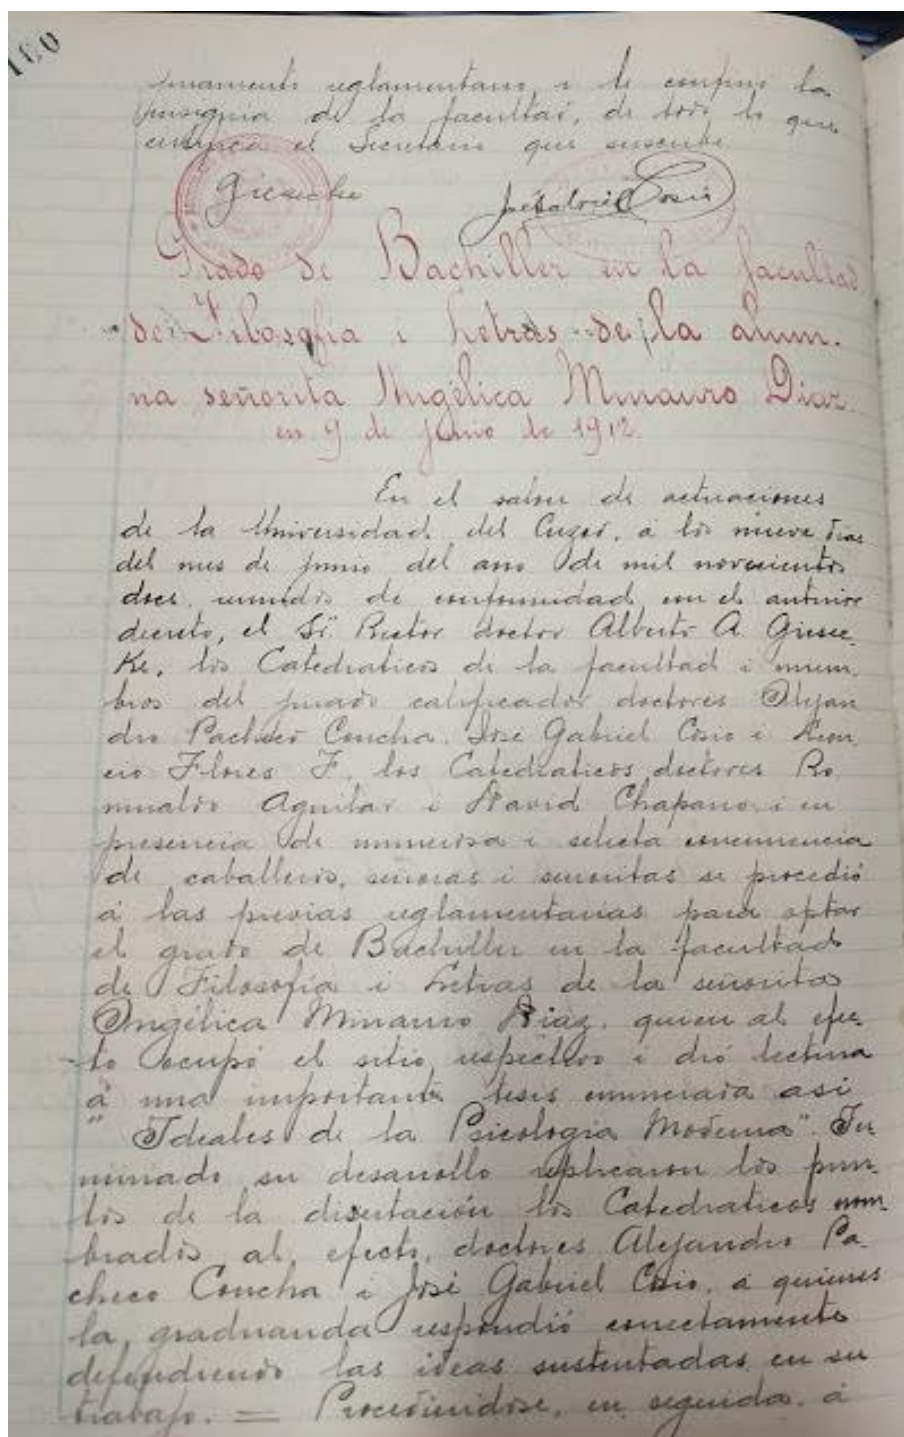 180
juramento reglamentario, i le confirió la
insignia de la facultad, de todo lo que
certifica el Secretario que suscribe.
Giesecke José Gabriel Cosio
Grado de Bachiller en la facultad
de Filosofia i Letras de la alum-
na señorita Angélica Minauro Diaz
en 9 de junio de 1912.
En el salon de actuaciones
de la Universidad del Cuzco, á los nueve dias
del mes de junio del año de mil novecientos
doce, reunidos de conformidad con el anterior
decreto, el Sr. Rector doctor Alberto A. Giesec-
ke, los Catedraticos de la facultad i miem-
bros del jurado calificador doctores Alejan
dro Pacheco Concha, José Gabriel Cosio i Leon
cio Flores F, los Catedraticos doctores Ro
mualdo Aguilar i David Chaparro i en
presencia de numerosa i selecta concurrencia
de caballeros, señoras i señoritas se procedió
á las previas reglamentarias para optar
el grado de Bachiller en la facultad
de Filosofía i Letras de la señorita
Angélica Minauro Diaz, quien al efec-
to ocupó el sitio respectivo i dió lectura
á una importante tesis enunciada asi
" Ideales de la Psicologia Moderna". Ter
minado su desarrollo replicaron los pun-
tos de la disertación los Catedraticos nom-
brados al efecto, doctores Alejandro Pa-
checo Concha i José Gabriel Cosio, á quienes
la graduanda respondió correctamente
defendiendo las ideas sustentadas en su
trabajo. = Procediendose, en seguida, á